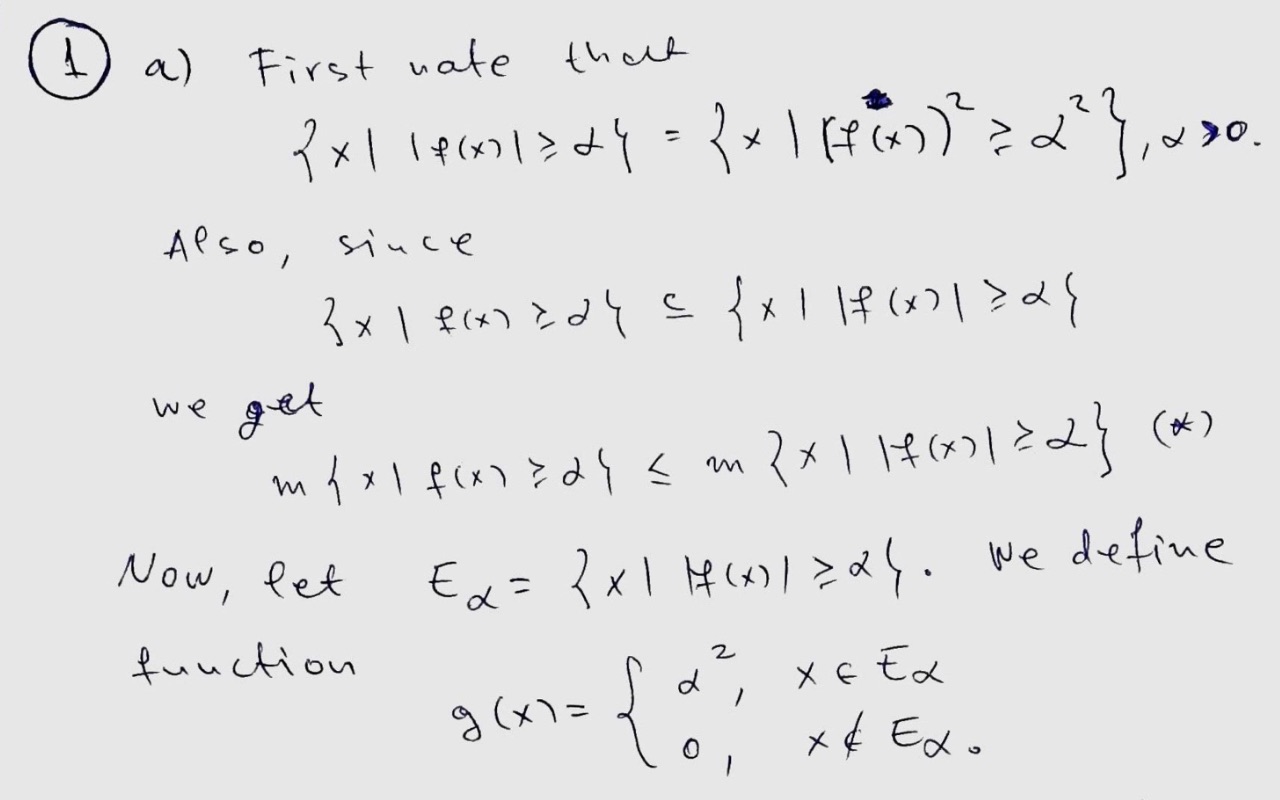 ① a) First note that
{x | |f(x)| ≥ α} = {x | (f(x))² ≥ α²}, α > 0.
Also, since
{x | f(x) ≥ α} ⊆ {x | |f(x)| ≥ α}
we get
m{x | f(x) ≥ α} ≤ m{x | |f(x)| ≥ α} (*)
Now, let E_α = {x | |f(x)| ≥ α}. We define
function
g(x) = { α², x ∈ E_α
0, x ∉ E_α.